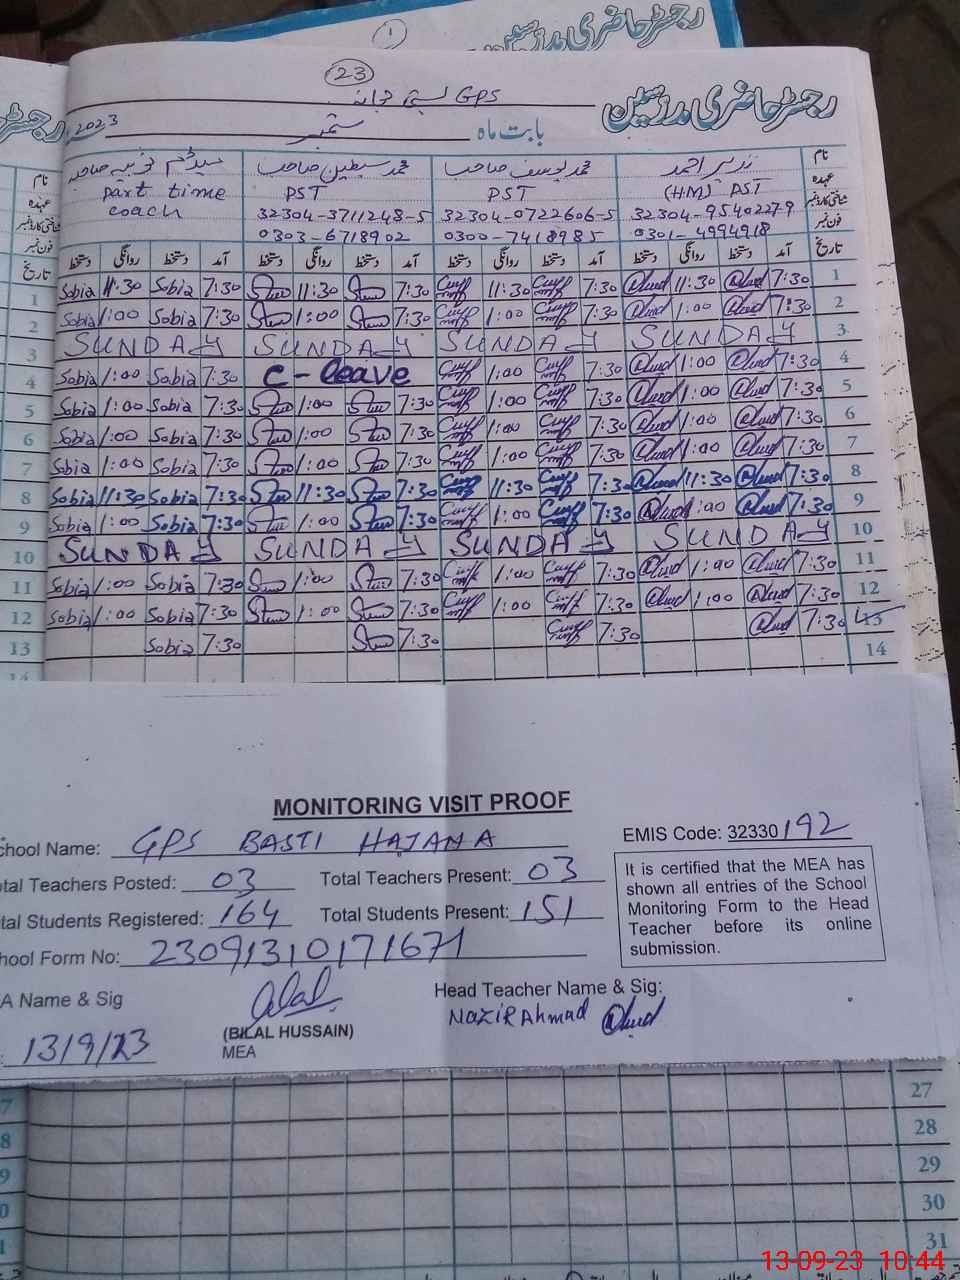 رجسٹر حاضری مدرسین
1
23
GPS بستی حجانہ
رجسٹر حاضری مدرسین
بابت ماہ ستمبر 2023
نام نذیر احمد محمد یوسف صاحب محمد سبطین صاحب میڈم ثوبیہ صاحبہ نام
عہدہ (HM) PST PST PST part time coach عہدہ
شناختی کارڈ نمبر 32304-9540227-9 32304-0722606-5 32304-3711248-5 شناختی کارڈ نمبر
فون نمبر 0301-4994918 0300-7418985 0303-6718902 فون نمبر
تاریخ آمد دستخط روانگی دستخط آمد دستخط روانگی دستخط آمد دستخط روانگی دستخط آمد دستخط روانگی دستخط تاریخ
1 Sobia 11:30 Sobia 7:30 11:30 7:30 11:30 7:30 11:30 7:30 1
2 Sobia 1:00 Sobia 7:30 1:00 7:30 1:00 7:30 1:00 7:30 2
3 SUNDAY SUNDAY SUNDAY SUNDAY 3
4 Sobia 1:00 Sobia 7:30 C-leave 1:00 7:30 1:00 7:30 4
5 Sobia 1:00 Sobia 7:30 1:00 7:30 1:00 7:30 1:00 7:30 5
6 Sobia 1:00 Sobia 7:30 1:00 7:30 1:00 7:30 1:00 7:30 6
7 Sobia 1:00 Sobia 7:30 1:00 7:30 1:00 7:30 1:00 7:30 7
8 Sobia 11:30 Sobia 7:30 11:30 7:30 11:30 7:30 11:30 7:30 8
9 Sobia 1:00 Sobia 7:30 1:00 7:30 1:00 7:30 1:00 7:30 9
10 SUNDAY SUNDAY SUNDAY SUNDAY 10
11 Sobia 1:00 Sobia 7:30 1:00 7:30 1:00 7:30 1:00 7:30 11
12 Sobia 1:00 Sobia 7:30 1:00 7:30 1:00 7:30 1:00 7:30 12
13 Sobia 7:30 7:30 7:30 7:30 13
14
MONITORING VISIT PROOF
chool Name: GPS BASTI HAJANA EMIS Code: 32330192
tal Teachers Posted: 03 Total Teachers Present: 03
tal Students Registered: 164 Total Students Present: 151
hool Form No: 23091310171671
It is certified that the MEA has
shown all entries of the School
Monitoring Form to the Head
Teacher before its online
submission.
A Name & Sig Head Teacher Name & Sig:
Nazir Ahmad
(BILAL HUSSAIN)
MEA
: 13/9/23
7 27
8 28
9 29
0 30
1 31
13-09-23 10:44